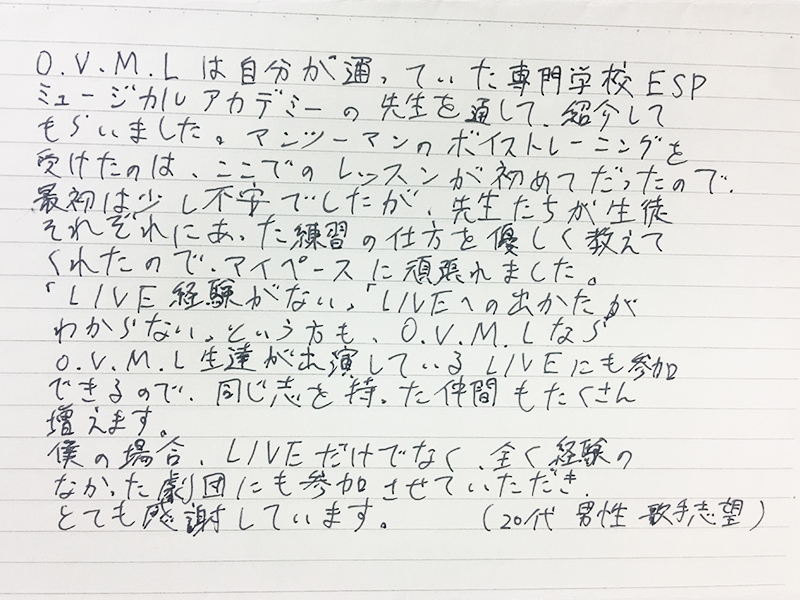 O.V.M.Lは自分が通っていた専門学校ESP
ミュージカルアカデミーの先生を通して、紹介して
もらいました。マンツーマンのボイストレーニングを
受けたのは、ここでのレッスンが初めてだったので、
最初は少し不安でしたが、先生たちが生徒
それぞれにあった練習の仕方を優しく教えて
くれたので、マイペースに頑張れました。
「LIVE経験がない」「LIVEへの出かたが
わからない」という方も、O.V.M.Lなら
O.V.M.L生達が出演しているLIVEにも参加
できるので、同じ志を持った仲間もたくさん
増えます。
僕の場合、LIVEだけでなく、全く経験の
なかった劇団にも参加させていただき、
とても感謝しています。 (20代 男性 歌手志望)